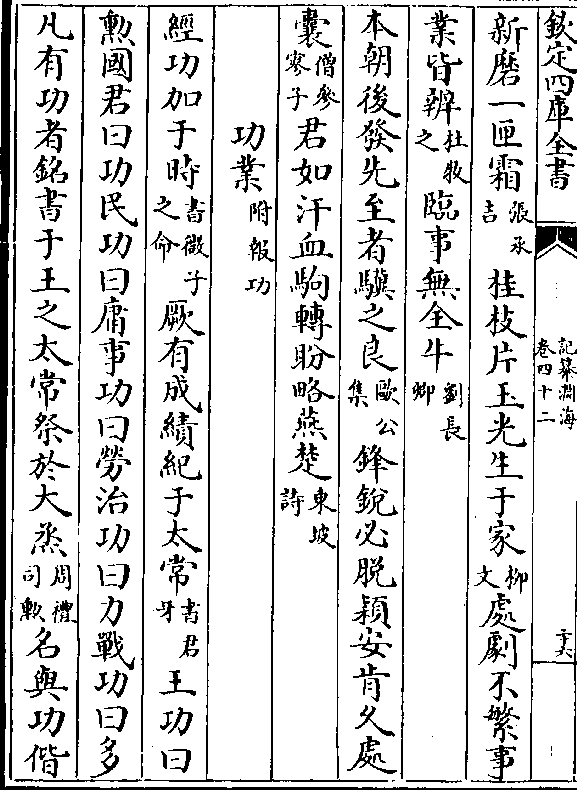 欽定四庫全書
記纂淵海
卷四十二
二十六
新磨一匣霜張承吉 桂枝片玉光生于家柳文處劇不繁事
業皆辨杜牧之臨事無全牛劉長卿
本朝後發先至者驥之良歐公集鋒銳必脫穎安肯久處
囊僧參寥子君如汗血駒轉盼略燕楚東坡詩
功業附報功
經功加于時書微子之命厥有成績紀于太常書君牙王功曰
勲國君曰功民功曰庸事功曰勞治功曰力戰功曰多
凡有功者銘書于王之太常祭於大烝周禮司勲名與功偕